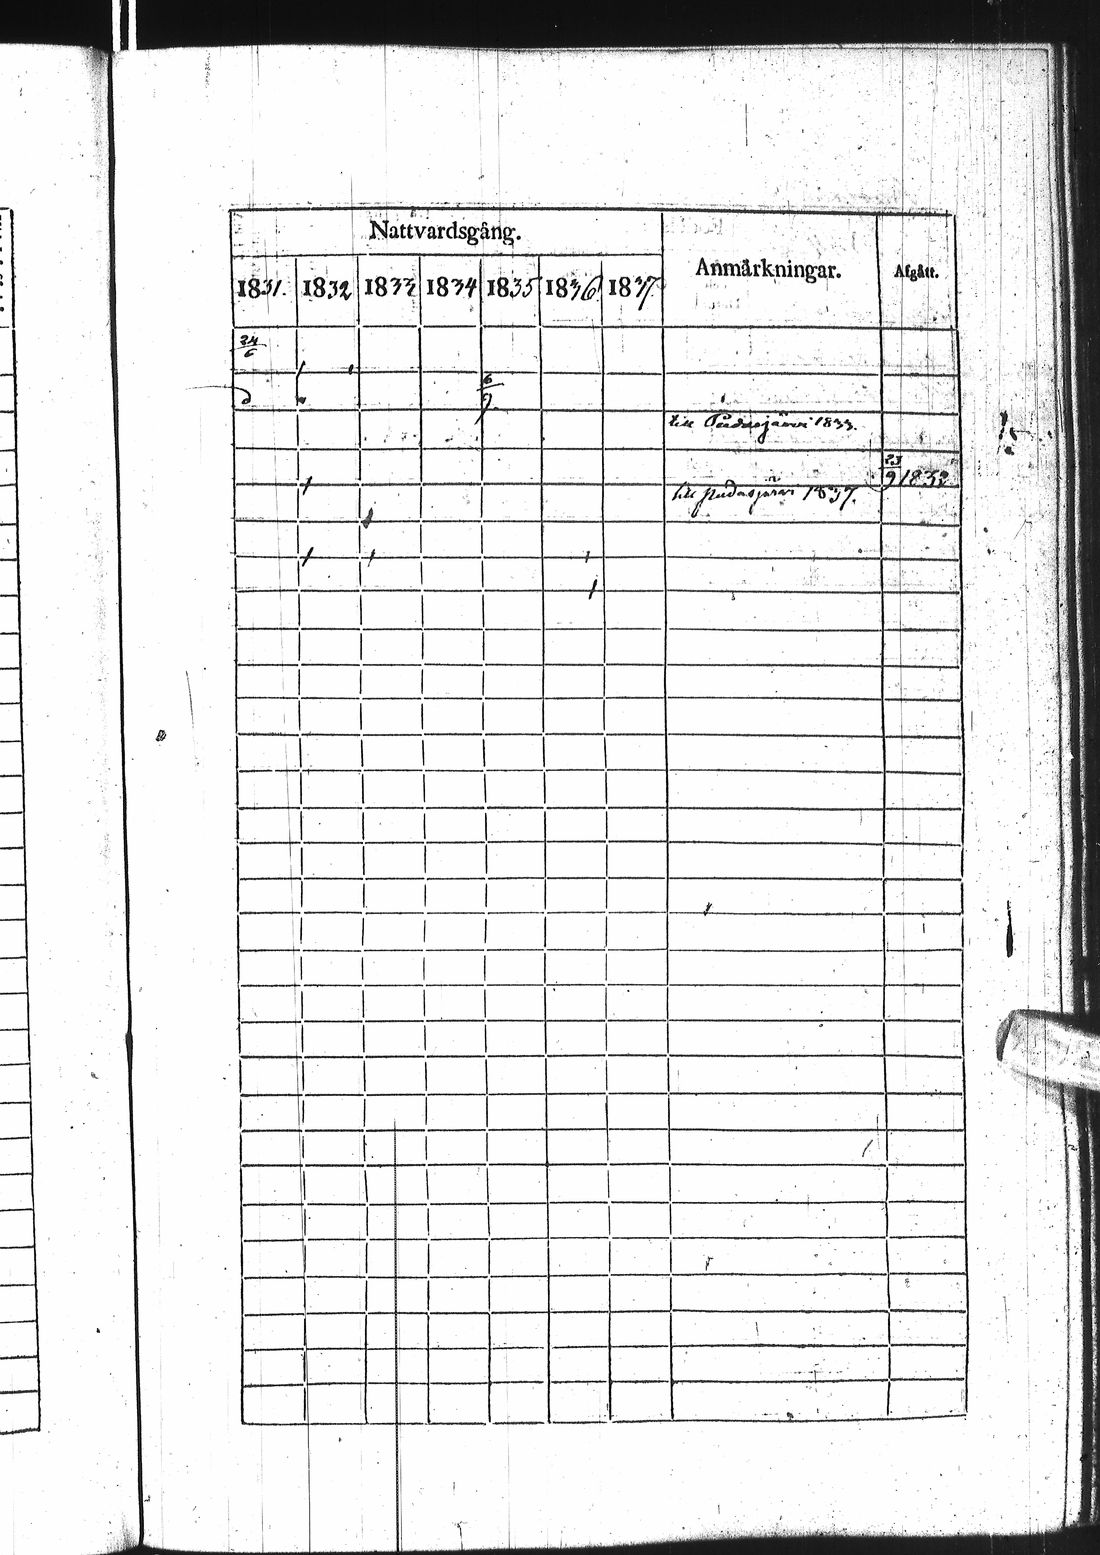 Nattvardsgång.
Anmärkningar.
Afgått.
1831. 1832 1833 1834 1835 1836 1837.
24/6
6/9
till Pudasjärvi 1833.
23/9 1832
till pudasjärvi 1837.